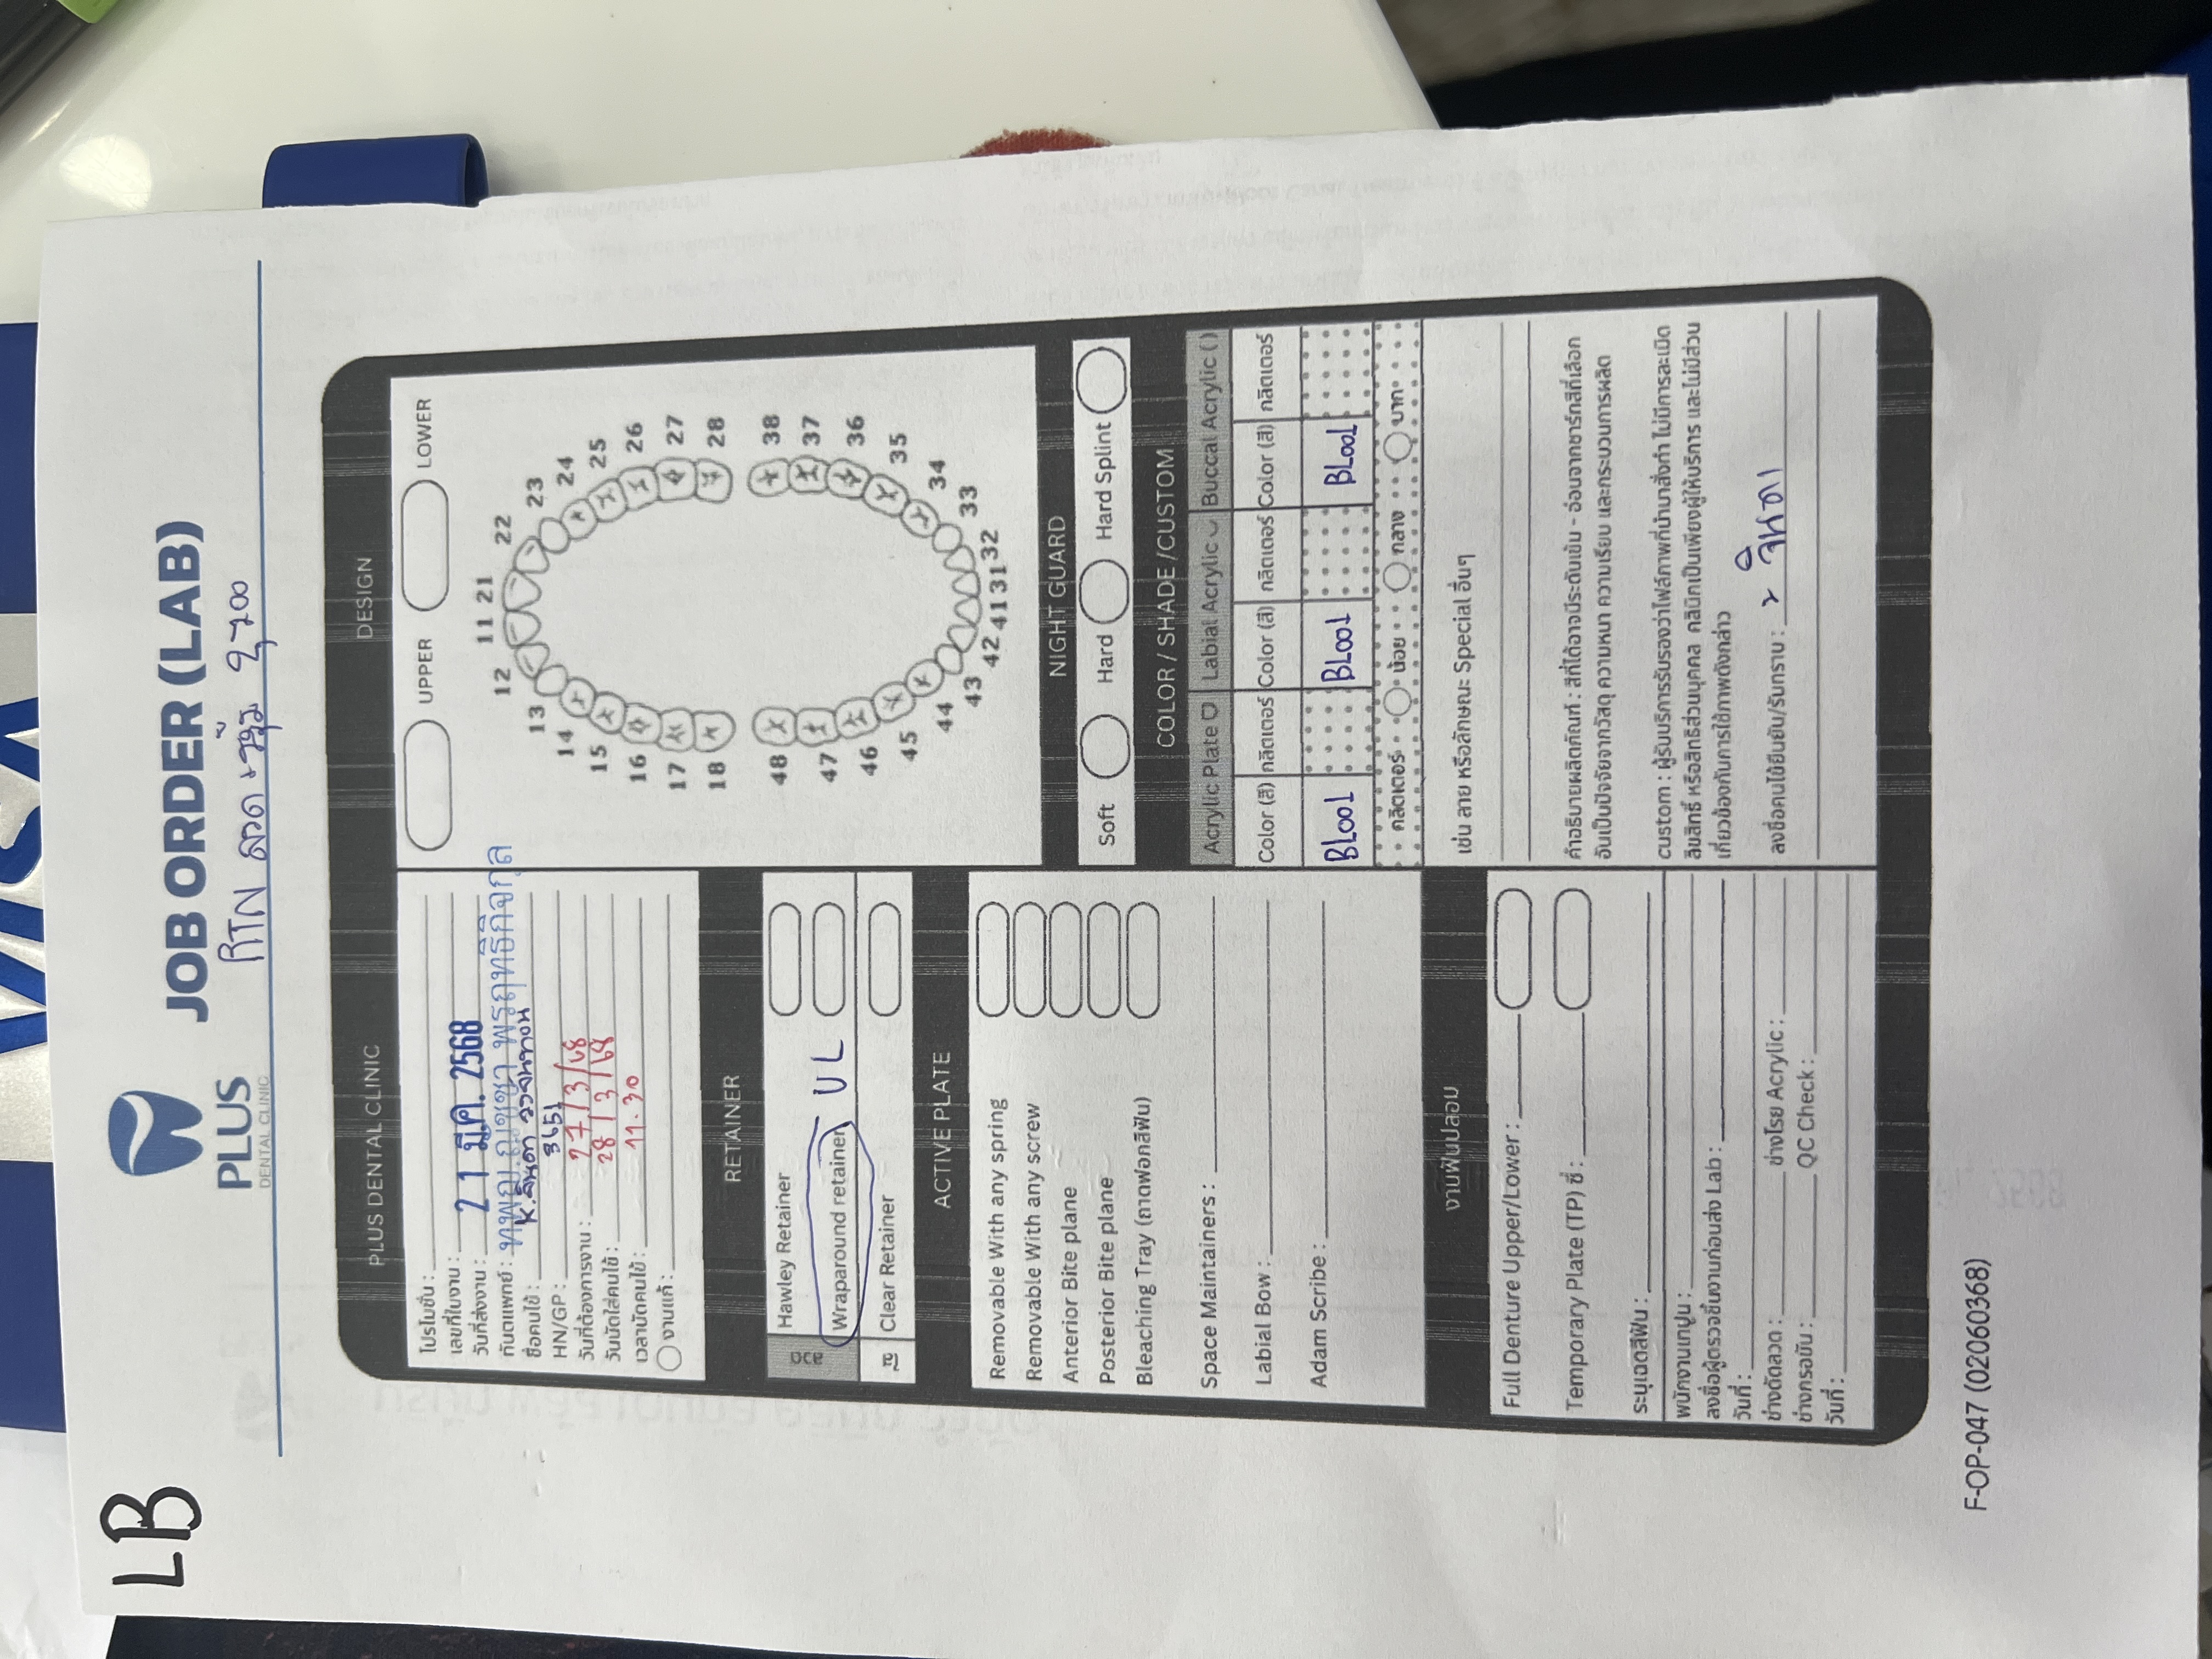 LB
PLUS
DENTAL CLINIC
JOB ORDER (LAB)
RTN ลวด
PLUS DENTAL CLINIC
โปรโมชั่น :
เลขที่ใบงาน :
วันที่ส่งงาน : 21 มี.ค. 2568
ทันตแพทย์ : ทพญ.ณชชา พรฤทธิกิจกุล
ชื่อคนไข้ : K.จินตา
HN/GP : 3651
วันที่ต้องการงาน : 27/3/68
วันนัดใส่คนไข้ : 28/3/68
เวลานัดคนไข้ : 11.30
งานแก้ :
RETAINER
ลวด
Hawley Retainer
Wraparound retainer UL
ใส
Clear Retainer
ACTIVE PLATE
Removable With any spring
Removable With any screw
Anterior Bite plane
Posterior Bite plane
Bleaching Tray (ถาดฟอกสีฟัน)
Space Maintainers :
Labial Bow :
Adam Scribe :
งานฟันปลอม
Full Denture Upper/Lower :
Temporary Plate (TP) ซี่ :
ระบุเฉดสีฟัน :
พนักงานเทปูน :
ลงชื่อผู้ตรวจชิ้นงานก่อนส่ง Lab :
วันที่ :
ช่างดัดลวด : ช่างโรย Acrylic :
ช่างกรอขัน : QC Check :
วันที่ :
DESIGN
UPPER LOWER
12 11 21 22
13 23
14 24
15 25
16 26
17 27
18 28
48 38
47 37
46 36
45 35
44 34
43 33
42 41 31 32
NIGHT GUARD
Soft Hard Hard Splint
COLOR / SHADE /CUSTOM
Acrylic Plate Labial Acrylic Buccal Acrylic ( )
Color (สี) กลิตเตอร์ Color (สี) กลิตเตอร์ Color (สี) กลิตเตอร์
BL001 BL001 BL001
กลิตเตอร์ น้อย กลาง มาก
เช่น ลาย หรือลักษณะ Special อื่นๆ
คำอธิบายผลิตภัณฑ์ : สีที่ได้อาจมีระดับเข้ม - อ่อนจากชาร์ทสีที่เลือก
อันเป็นปัจจัยจากวัสดุ ความหนา ความเรียบ และกระบวนการผลิต
custom : ผู้รับบริการรับรองว่าไฟล์ภาพที่นำมาสั่งทำ ไม่มีการละเมิด
ลิขสิทธิ์ หรือสิทธิส่วนบุคคล คลินิกเป็นเพียงผู้ให้บริการ และไม่มีส่วน
เกี่ยวข้องกับการใช้ภาพดังกล่าว
ลงชื่อคนไข้ยืนยัน/รับทราบ : x จินตา
F-OP-047 (02060368)